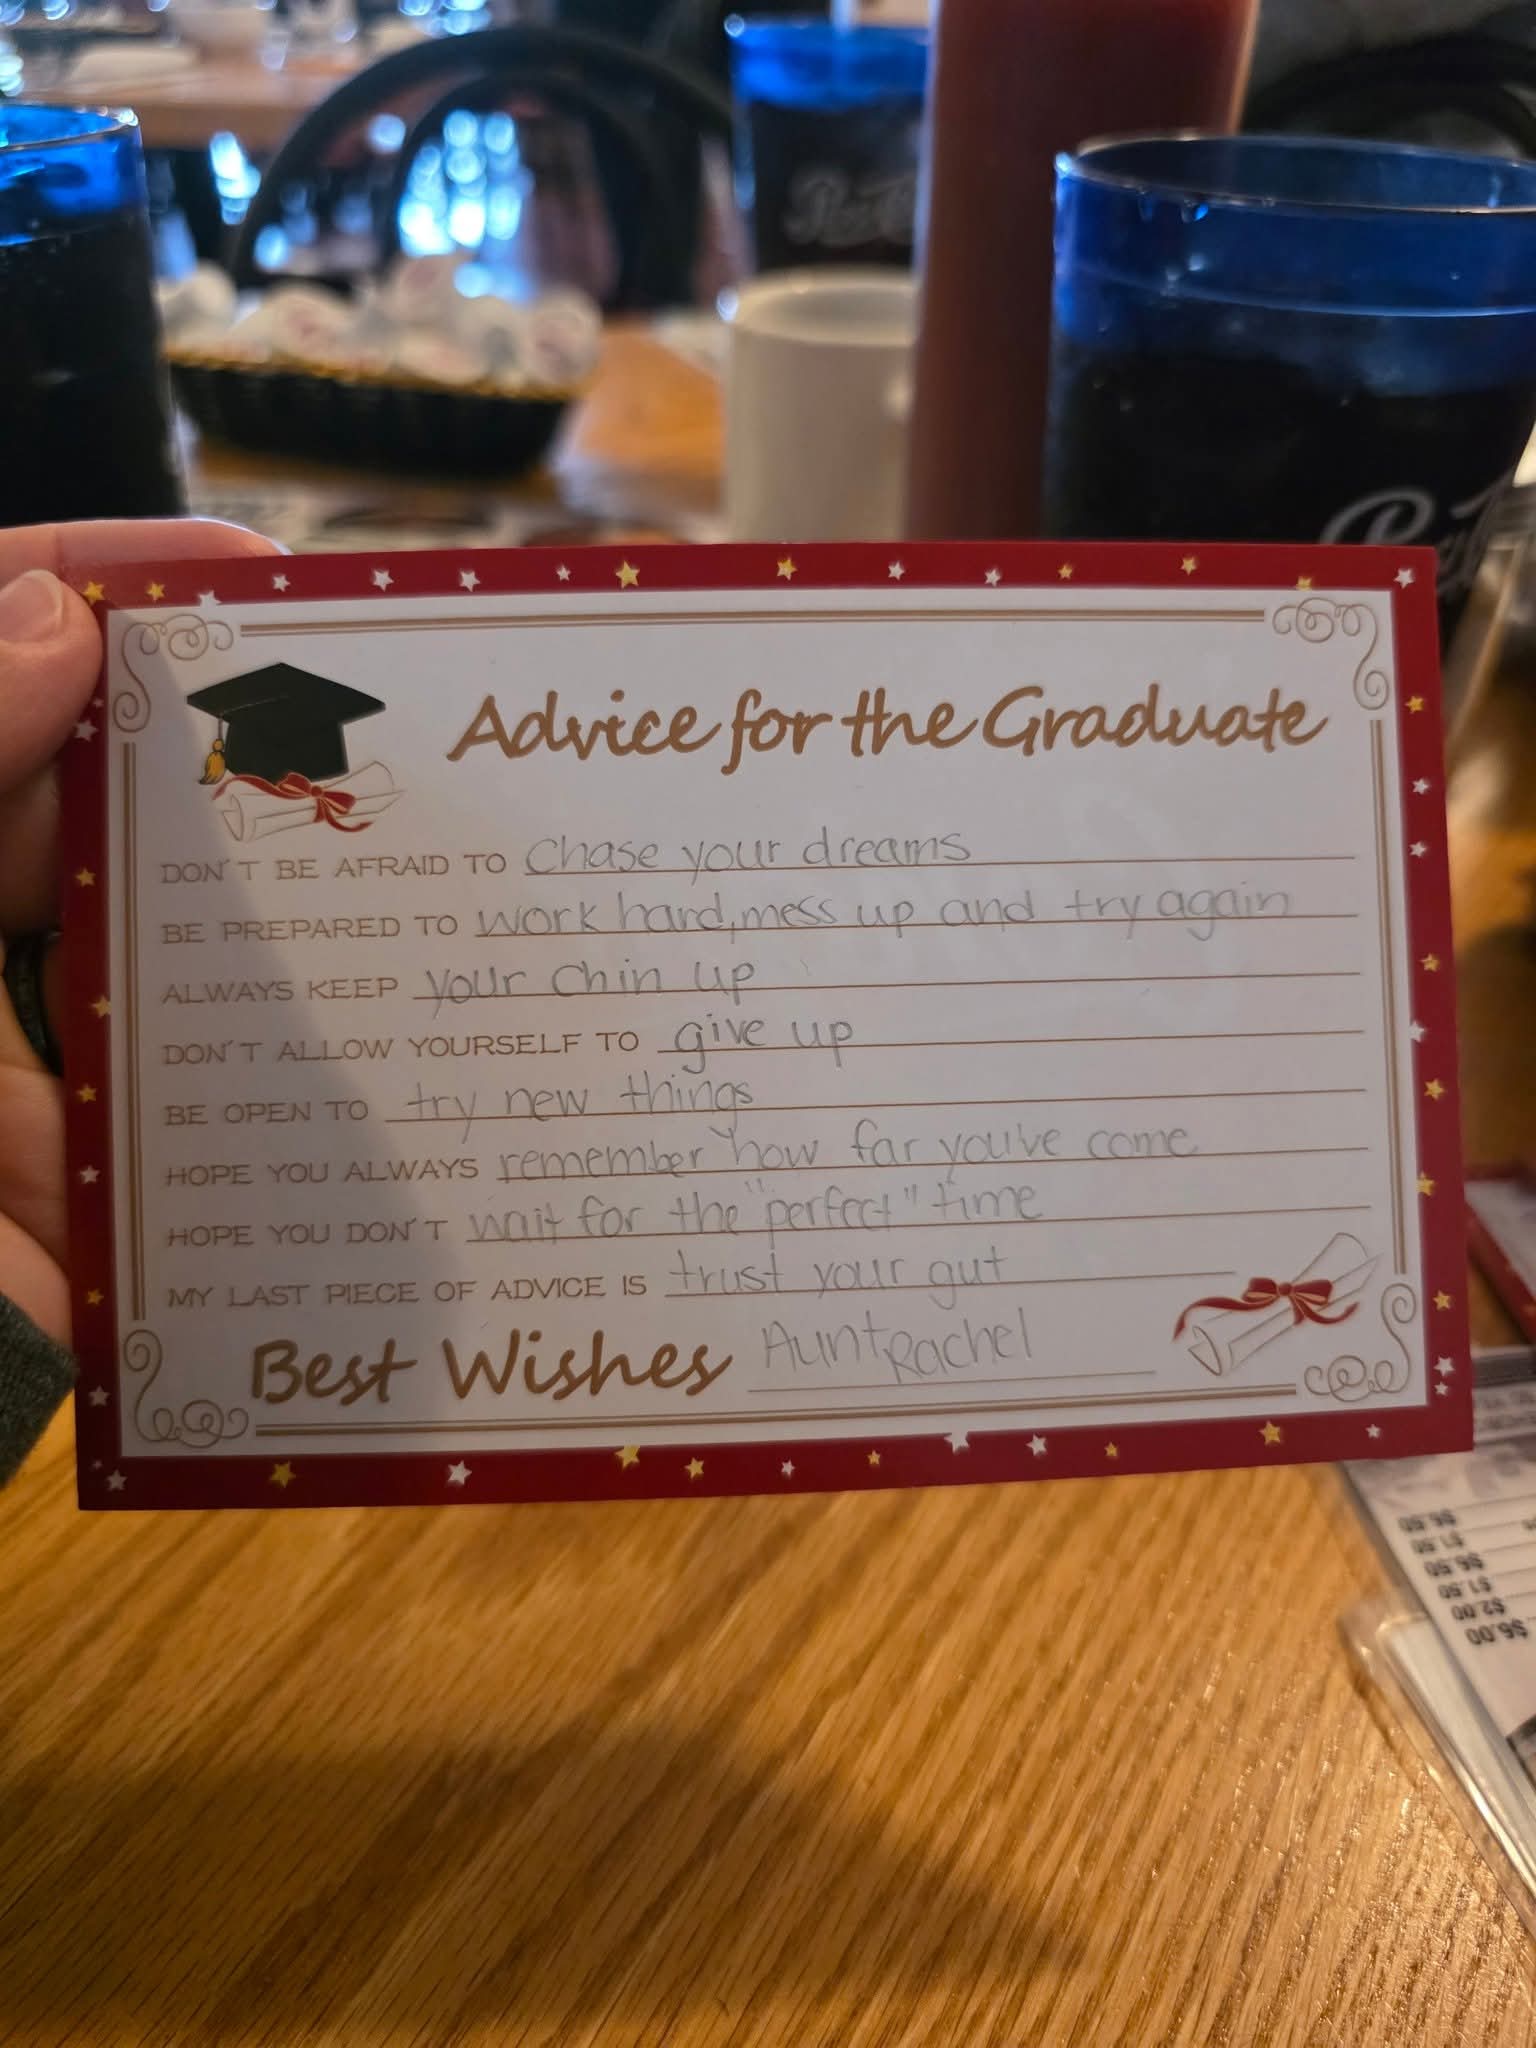 Advice for the Graduate
DON'T BE AFRAID TO chase your dreams
BE PREPARED TO work hard, mess up and try again
ALWAYS KEEP your chin up
DON'T ALLOW YOURSELF TO give up
BE OPEN TO try new things
HOPE YOU ALWAYS remember how far you've come
HOPE YOU DON'T wait for the "perfect" time
MY LAST PIECE OF ADVICE IS trust your gut
Best Wishes Aunt Rachel
$1.50
$6.50
$1.50
$2.00
$6.00